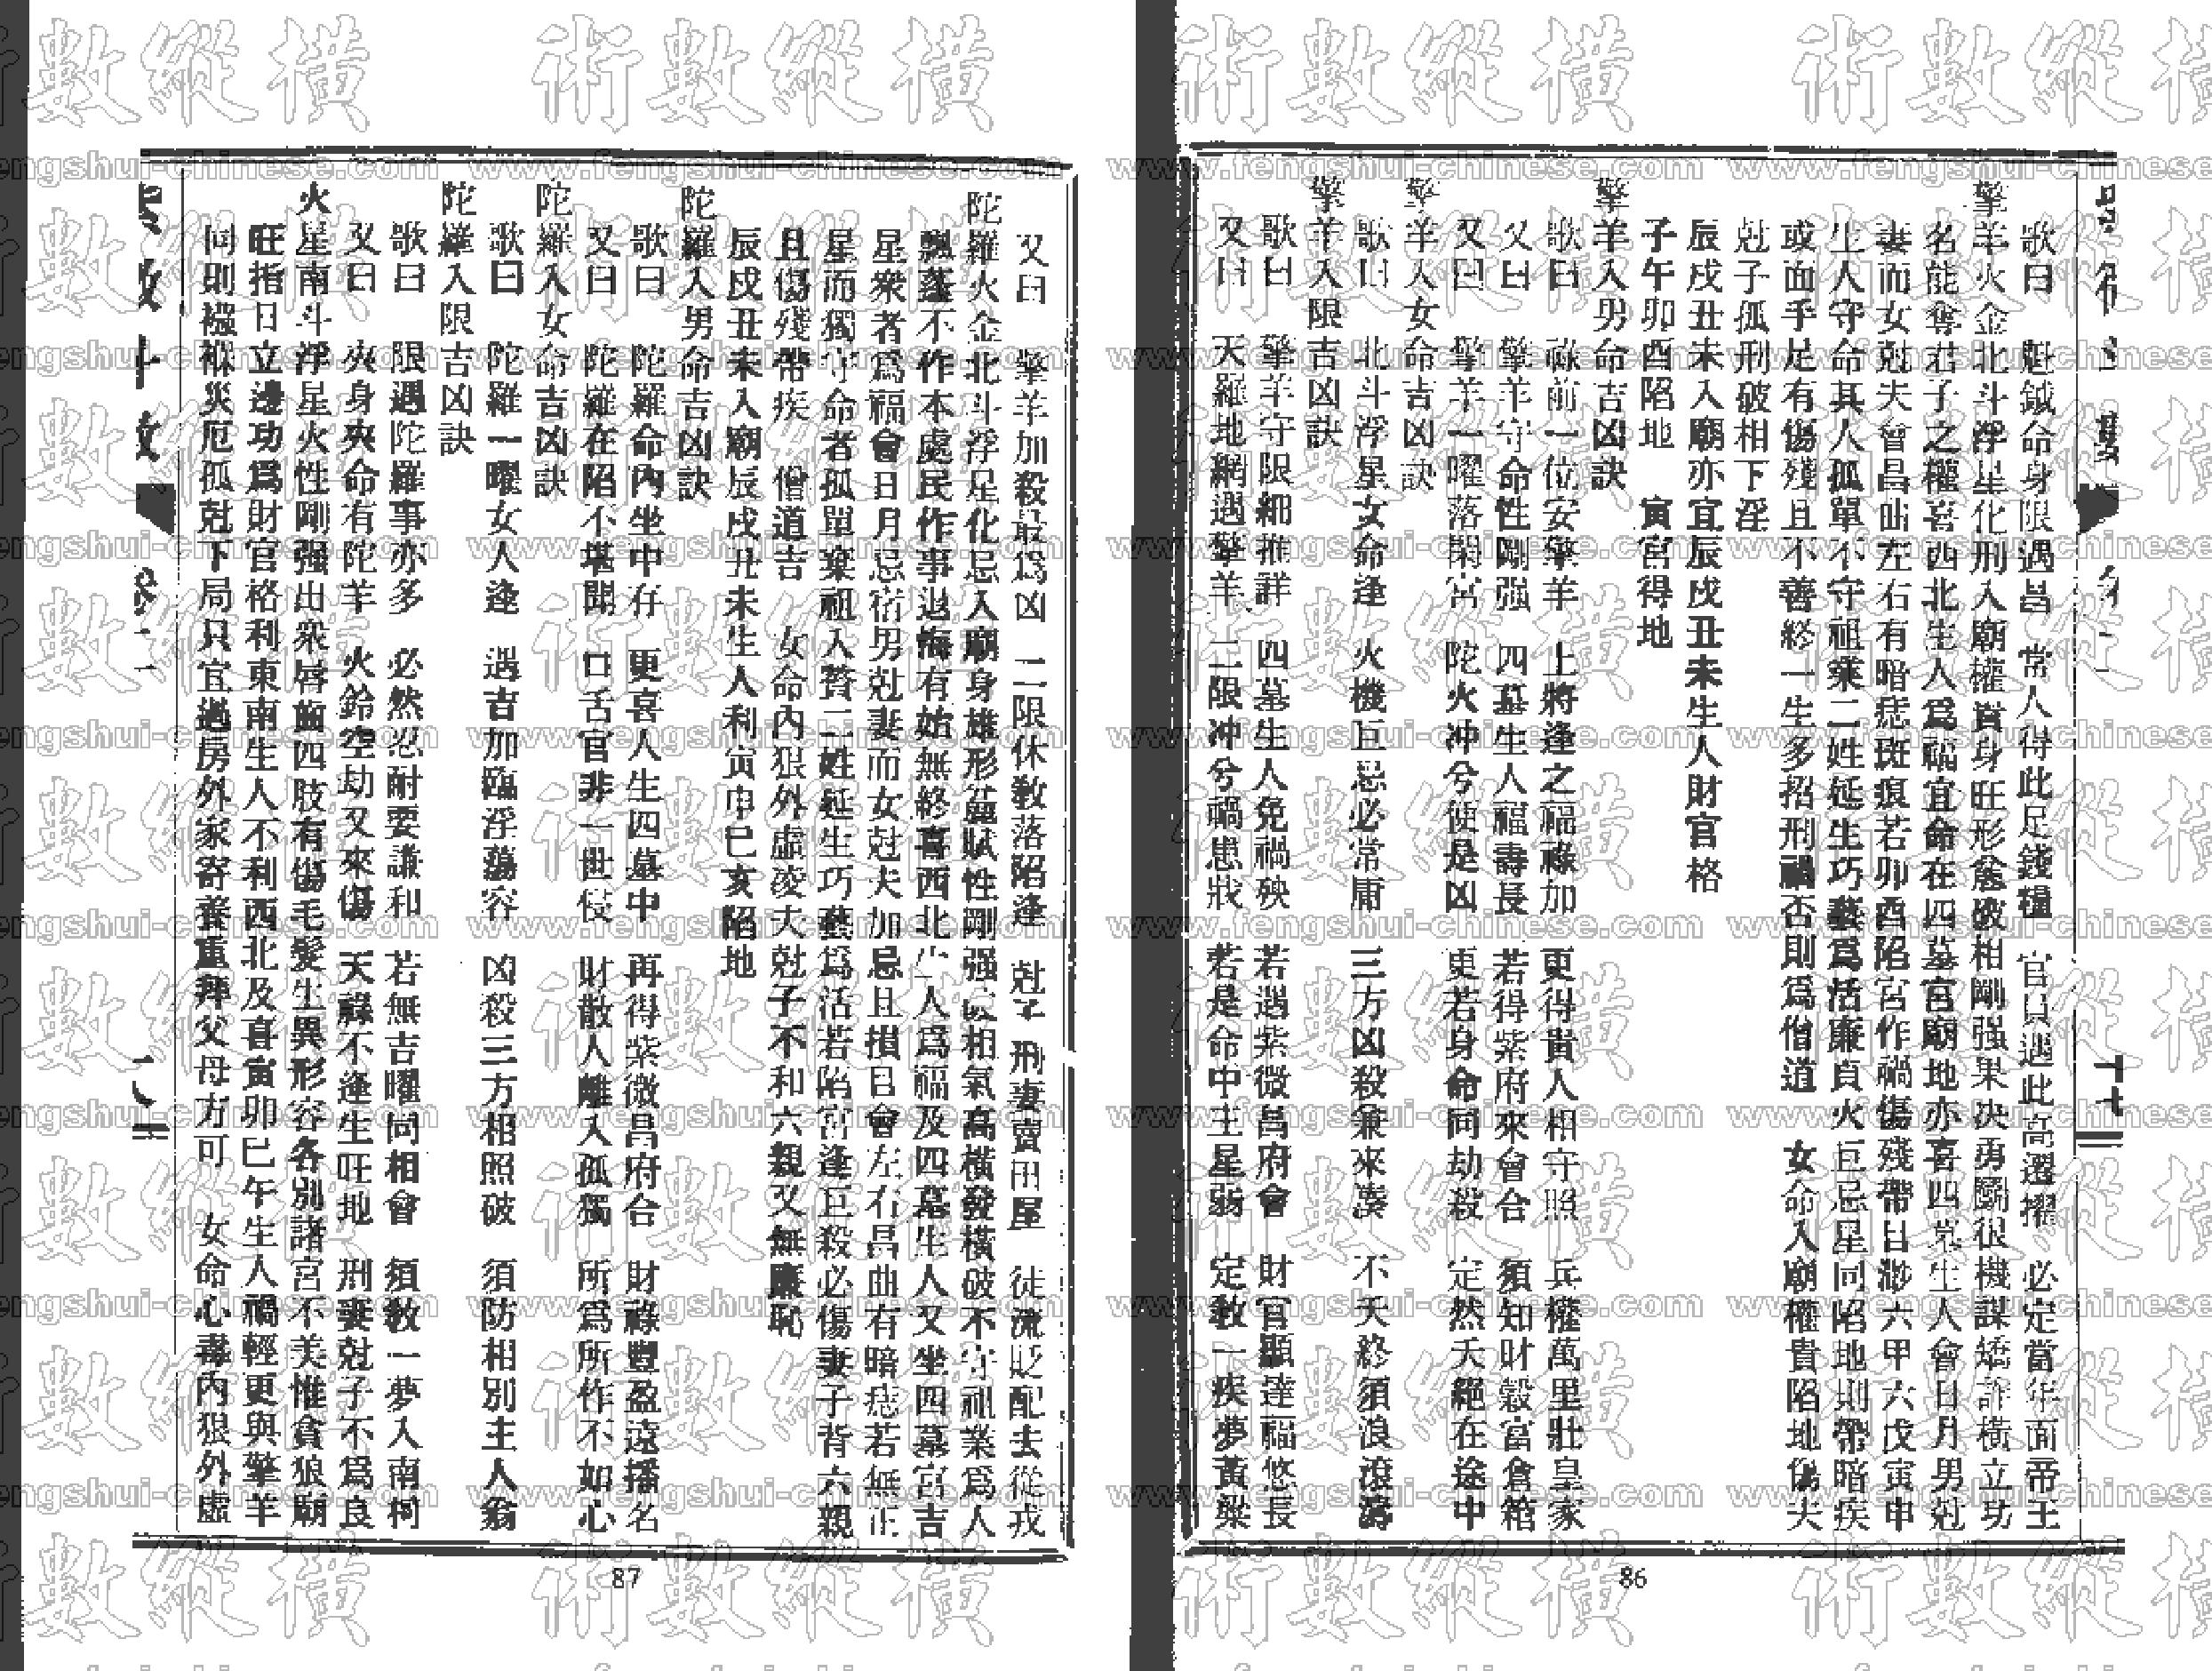 歌曰　魁鉞命身限遇昌　常人得此足錢糧　官員遇此高遷擢　必定當年面帝王
擎羊火金北斗浮星化刑入廟權貴身旺形麄破相剛强果決勇鬭很機謀矯詐橫立功
名能奪君子之權喜西北生人爲福宜命在四墓宮廟地亦喜四墓生人會日月男尅
妻而女尅夫會昌曲左右有暗痣斑痕若卯酉陷宮作禍傷殘帶目渺六甲六戊寅申
生人守命其人孤單不守祖業二姓延生巧藝爲活廉貞火巨忌星同陷地則帶暗疾
或面手足有傷殘且不善終一生多招刑禍否則爲僧道　女命入廟權貴陷地傷夫
尅子孤刑破相下淫
辰戌丑未入廟亦宜辰戌丑未生人財官格
子午卯酉陷地　寅宮得地
擎羊入男命吉凶訣
歌曰　祿前一位安擎羊　上將逢之福祿加　更得貴人相守照　兵權萬里壯皇家
又曰　擎羊守命性剛强　四墓生人福壽長　若得紫府來會合　須知財穀富倉箱
又曰　擎羊一曜落閑宮　陀火冲兮便是凶　更若身命同劫殺　定然夭絕在途中
擎羊入女命吉凶訣
歌曰　北斗浮星女命逢　火機巨忌必常庸　三方凶殺兼來湊　不夭終須浪滾濤
擎羊入限吉凶訣
歌曰　擎羊守限細推詳　四墓生人免禍殃　若遇紫微昌府會　財官顯達福悠長
又曰　天羅地網遇擎羊　二限冲兮禍患戕　若是命中主星弱　定教一疾夢黃粱
86
又曰　擎羊加殺最爲凶　二限休教落陷逢　尅子刑妻賣田屋　徒流貶配去從戎
陀羅火金北斗浮星化忌入廟身雄形麄賦性剛强破相氣高橫發橫破不守祖業爲人
飄蓬不作本處民作事退悔有始無終喜西北生人爲福及四墓生人又坐四墓宮吉
星衆者爲福會日月忌宿男尅妻而女尅夫加忌且損目會左右昌曲有暗痣若無正
星而獨守命者孤單棄祖入贅二姓延生巧藝爲活若陷宮逢巨殺必傷妻子背六親
且傷殘帶疾　僧道吉　女命內狠外虛凌夫尅子不和六親又無廉恥
辰戌丑未入廟辰戌丑未生人利寅申巳亥陷地
陀羅入男命吉凶訣
歌曰　陀羅命內坐中存　更喜人生四墓中　再得紫微昌府合　財祿豐盈遠播名
又曰　陀羅在陷不堪聞　口舌官非一世侵　財散人離入孤獨　所爲所作不如心
陀羅入女命吉凶訣
歌曰　陀羅一曜女人逢　遇吉加臨淫蕩容　凶殺三方相照破　須防相別主人翁
陀羅入限吉凶訣
歌曰　限遇陀羅事亦多　必然忍耐要謙和　若無吉曜同相會　須教一夢入南柯
又曰　夾身夾命有陀羊　火鈴空劫又來傷　天祿不逢生旺地　刑妻尅子不爲良
火星南斗浮星火性剛强出衆唇齒四肢有傷毛髮生異形容各別諸宮不美惟貪狼廟
旺指日立邊功爲財官格利東南生人不利西北及喜寅卯巳午生人禍輕更與擎羊
同則襁褓災厄孤尅下局只宜過房外家寄養重拜父母方可　女命心毒內狠外虛
87